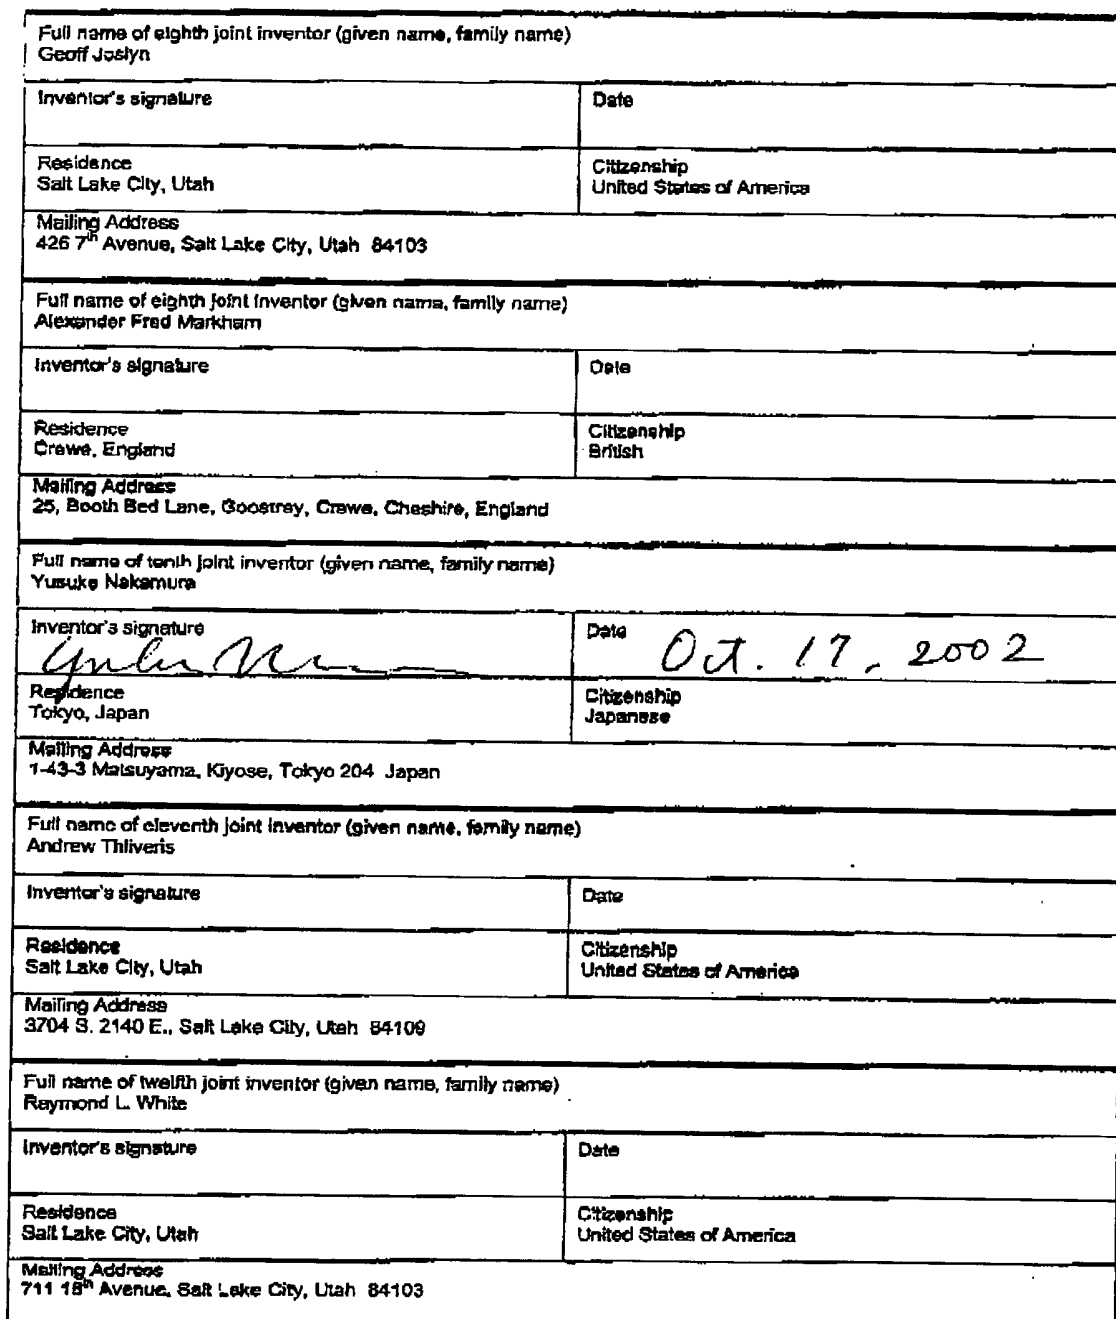 Full name of eighth joint inventor (given name, family name)
Geoff Joslyn
Inventor's signature Date
Residence Citizenship
Salt Lake City, Utah United States of America
Mailing Address
426 7th Avenue, Salt Lake City, Utah 84103
Full name of eighth joint inventor (given name, family name)
Alexander Fred Markham
Inventor's signature Date
Residence Citizenship
Crewe, England British
Mailing Address
25, Booth Bed Lane, Goostrey, Crewe, Cheshire, England
Full name of tenth joint inventor (given name, family name)
Yusuke Nakamura
Inventor's signature Date Oct. 17, 2002
Residence Citizenship
Tokyo, Japan Japanese
Mailing Address
1-43-3 Matsuyama, Kiyose, Tokyo 204 Japan
Full name of eleventh joint inventor (given name, family name)
Andrew Thliveris
Inventor's signature Date
Residence Citizenship
Salt Lake City, Utah United States of America
Mailing Address
3704 S. 2140 E., Salt Lake City, Utah 84109
Full name of twelfth joint inventor (given name, family name)
Raymond L. White
Inventor's signature Date
Residence Citizenship
Salt Lake City, Utah United States of America
Mailing Address
711 18th Avenue, Salt Lake City, Utah 84103